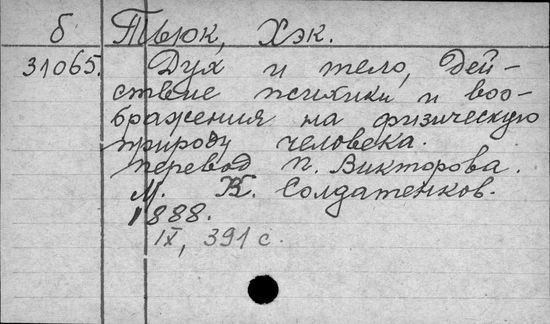 б Тьюк, Хэк.
31065. Дух и тело, дей-
ствие психики и воо-
бражения на физическую
природу человека.
перевод П. Викторова.
М. К. Солдатенков.
1888.
IX, 391 с.